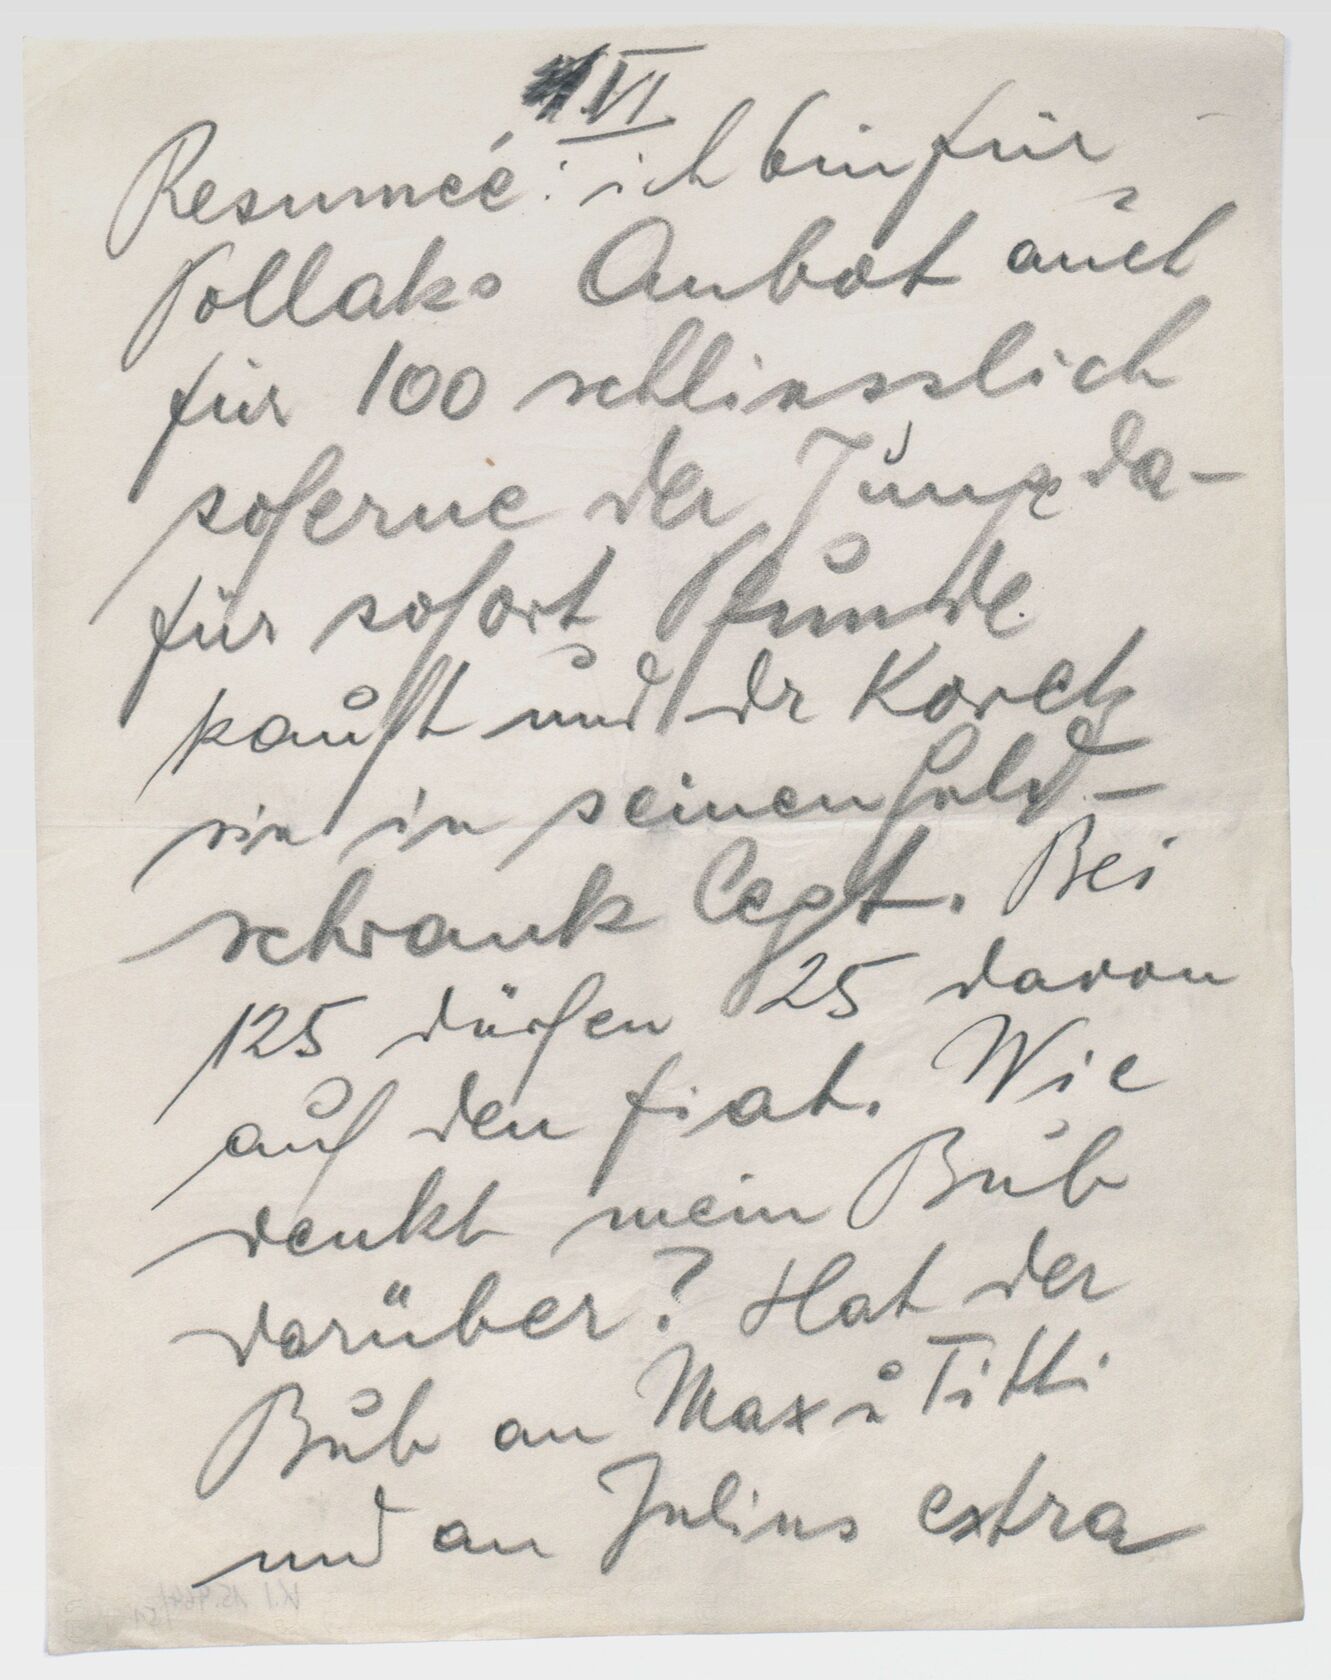 VI
Resumeé: ich bin für
Pollaks Anbot auch
für 100 schliesslich
soferne der Junge da-
für sofort Pfunde
kauft und dr Koretz
sie in seinen Geld-
schrank legt. Bei
125 dürfen 25 davon
auf den fiat. Wie
denkt mein Bub
darüber? Hat der
Bub an Max u Titti
und an Julius extra